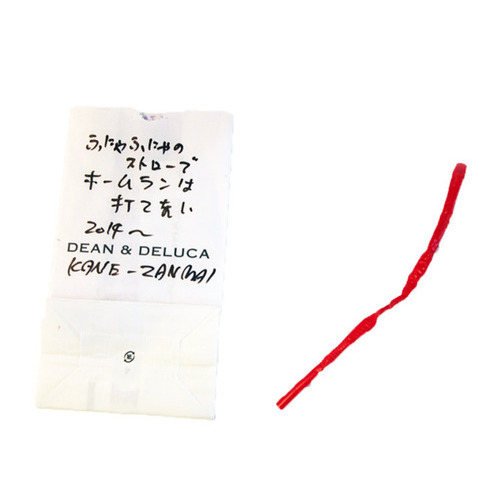 ふにゃふにゃの
ストローで
ホームランは
打てない
2014〜
DEAN & DELUCA
KANE-ZANMAI